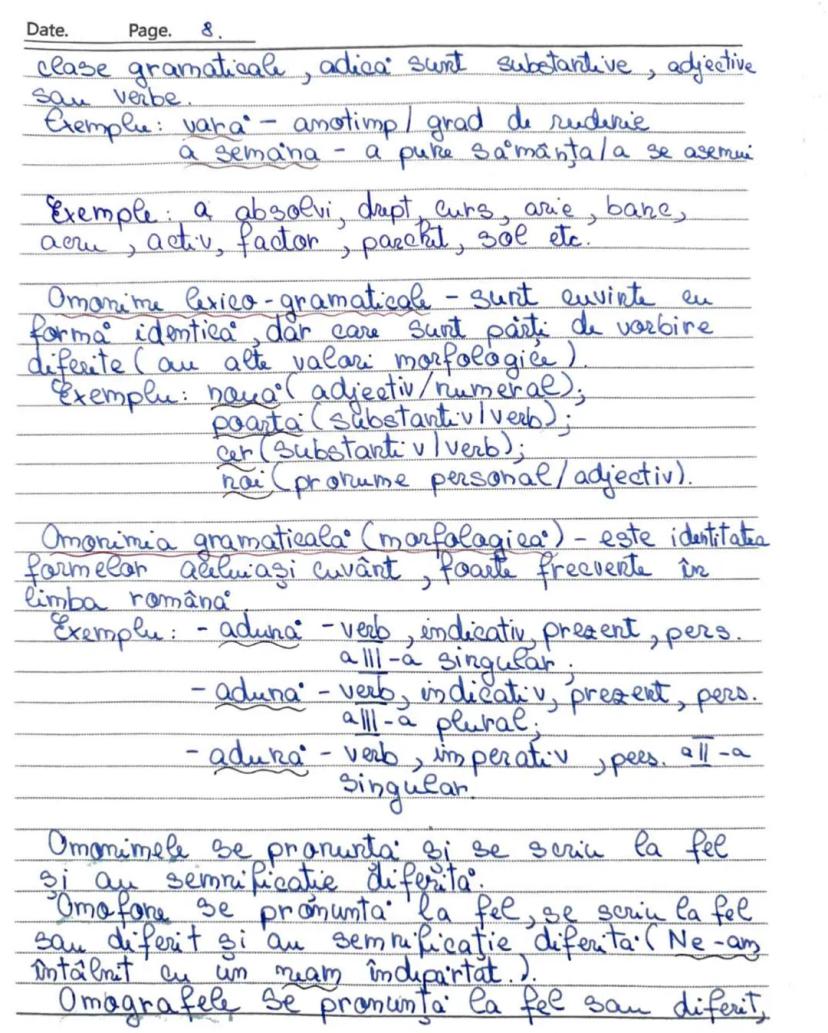 Date. Page. 8.
clase gramaticale, adică sunt substantive, adjective
sau verbe.
Exemplu: vară - anotimp/ grad de rudenie
a semăna - a pune sămânța/a se asemui
Exemple: a absolvi, drept, curs, arie, banc,
acru, activ, factor, parchet, sol etc.
Omonime lexico-gramaticale - sunt cuvinte cu
formă identică, dar care sunt părți de vorbire
diferite (au alte valori morfologice).
Exemplu: nouă (adjectiv/numeral);
poartă (substantiv/verb);
cer (substantiv/verb);
noi (pronume personal/adjectiv).
Omonimia gramaticală (morfologică) - este identitatea
formelor aceluiași cuvânt, foarte frecvente în
limba română
Exemplu: - adună - verb, indicativ, prezent, pers.
a III-a singular;
- adună - verb, indicativ, prezent, pers.
a III-a plural;
- adună - verb, imperativ, pers. a II-a
singular.
Omonimele se pronunță și se scriu la fel
și au semnificație diferită.
Omofone se pronunță la fel, se scriu la fel
sau diferit și au semnificație diferită (Ne-am
întâlnit cu un neam îndepărtat.).
Omografele se pronunță la fel sau diferit,